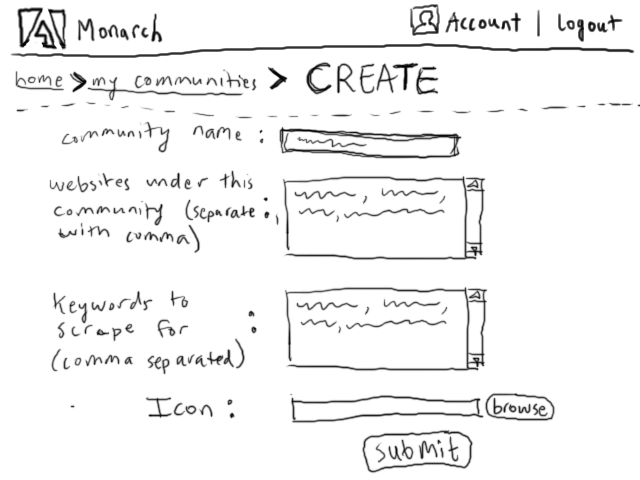 Monarch
Account | Logout
home > my communities > CREATE
community name :
websites under this
community (separate :
with comma)
Keywords to
scrape for :
(comma separated)
Icon :
browse
submit